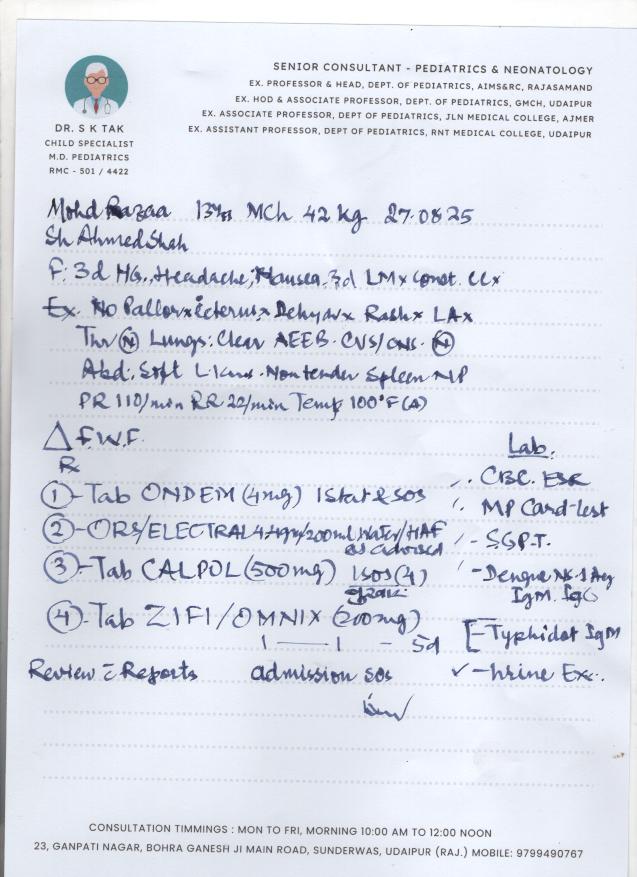 SENIOR CONSULTANT - PEDIATRICS & NEONATOLOGY
EX. PROFESSOR & HEAD, DEPT. OF PEDIATRICS, AIMS&RC, RAJASAMAND
EX. HOD & ASSOCIATE PROFESSOR, DEPT. OF PEDIATRICS, GMCH, UDAIPUR
EX. ASSOCIATE PROFESSOR, DEPT OF PEDIATRICS, JLN MEDICAL COLLEGE, AJMER
EX. ASSISTANT PROFESSOR, DEPT OF PEDIATRICS, RNT MEDICAL COLLEGE, UDAIPUR
DR. S K TAK
CHILD SPECIALIST
M.D. PEDIATRICS
RMC - 501 / 4422
Mohd Razaa 13yrs MCh 42 kg 27.08.25
Sh Ahmed Shah
F: 3d HG., Headache, Nausea. 3d LMx Const. CCx
Ex. No Pallorx icterusx Dehydrx Rashx LAx
Thr (N) Lungs: Clear AEEB. CVS/CNS. (N)
Abd: Soft Non tender Spleen NP
PR 110/min RR 22/min Temp 100°F (A)
△ F.W.F.
Rx
① - Tab ONDEM (4mg) 1 Stat & SOS
② - ORS/ELECTRAL 200ml Water/HAF
as advised
③ - Tab CALPOL (500mg) 1 SOS (4)
④ - Tab ZIFI/OMNIX (200mg)
1 — 1 - 5d
Review c̄ Reports admission SOS
Lab.
CBC. ESR
MP Card-test
- S.G.P.T.
- Dengue NS-1 Ag
IgM. IgG
[- Typhidot IgM
✓ - Urine Ex.
CONSULTATION TIMMINGS : MON TO FRI, MORNING 10:00 AM TO 12:00 NOON
23, GANPATI NAGAR, BOHRA GANESH JI MAIN ROAD, SUNDERWAS, UDAIPUR (RAJ.) MOBILE: 9799490767